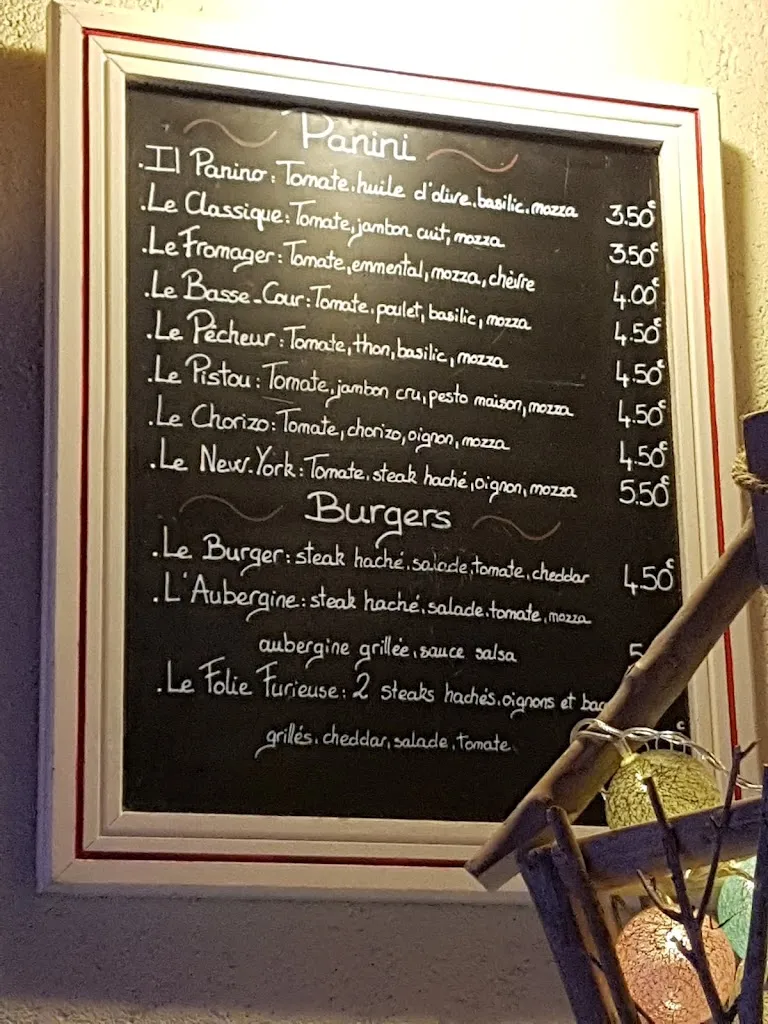 Panini
.Il Panino: Tomate.huile d'olive.basilic.mozza 3.50€
.Le Classique: Tomate,jambon cuit, mozza 3.50€
.Le Fromager: Tomate,emmental,mozza,chèvre 4.00€
.Le Basse-Cour: Tomate.poulet, basilic, mozza 4.50€
.Le Pêcheur: Tomate,thon,basilic, mozza 4.50€
.Le Pistou: Tomate,jambon cru,pesto maison,mozza 4.50€
.Le Chorizo: Tomate, chorizo,oignon, mozza 4.50€
.Le New.York: Tomate, steak haché,oignon, mozza 5.50€
Burgers
.Le Burger: steak haché.salade.tomate.cheddar 4.50€
.L'Aubergine: steak haché.salade.tomate, mozza
aubergine grillée.sauce salsa 5
.Le Folie Furieuse: 2 steaks hachés.oignons et
grillés.cheddar,salade.tomate €